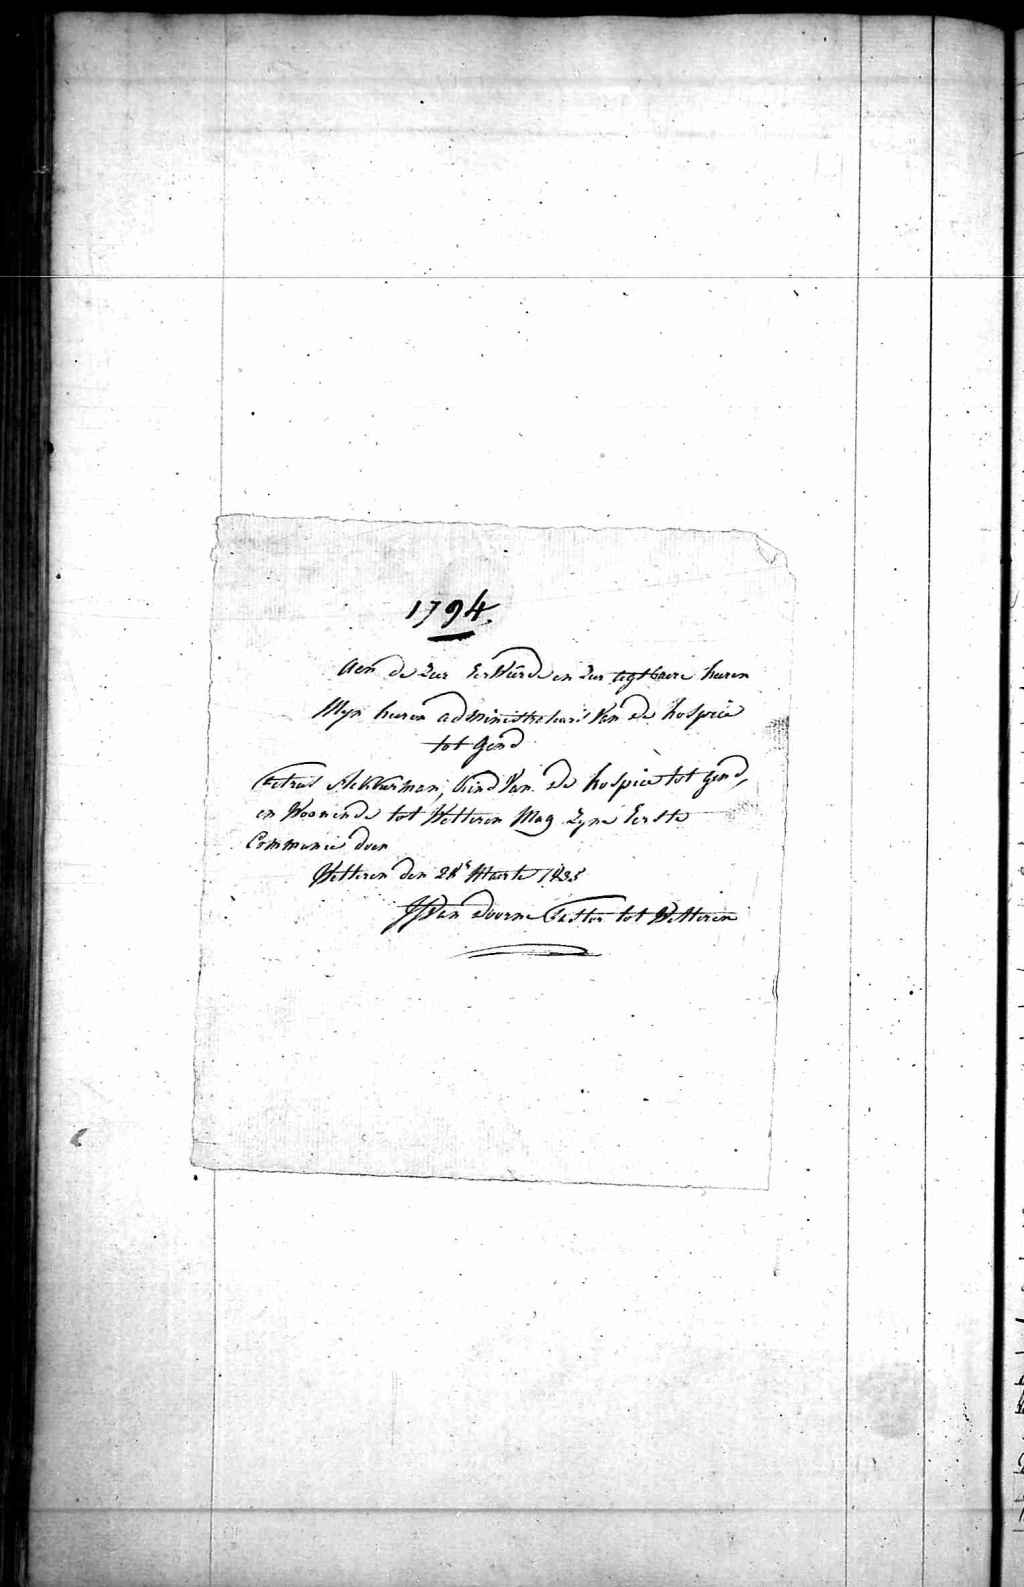 1794.
Aen de Zeer EerWürde en Zeer agtbaere heeren
Mÿn heeren administrateurs Van de hospice
tot Gend
Petrus Akkerman, Kind Van de hospice tot gend,
en Woonende tot Wetteren Mag Zyne Eerste
Communie doen
Wetteren den 28 Maerte 1835
Van Doorne Pastor tot Wetteren